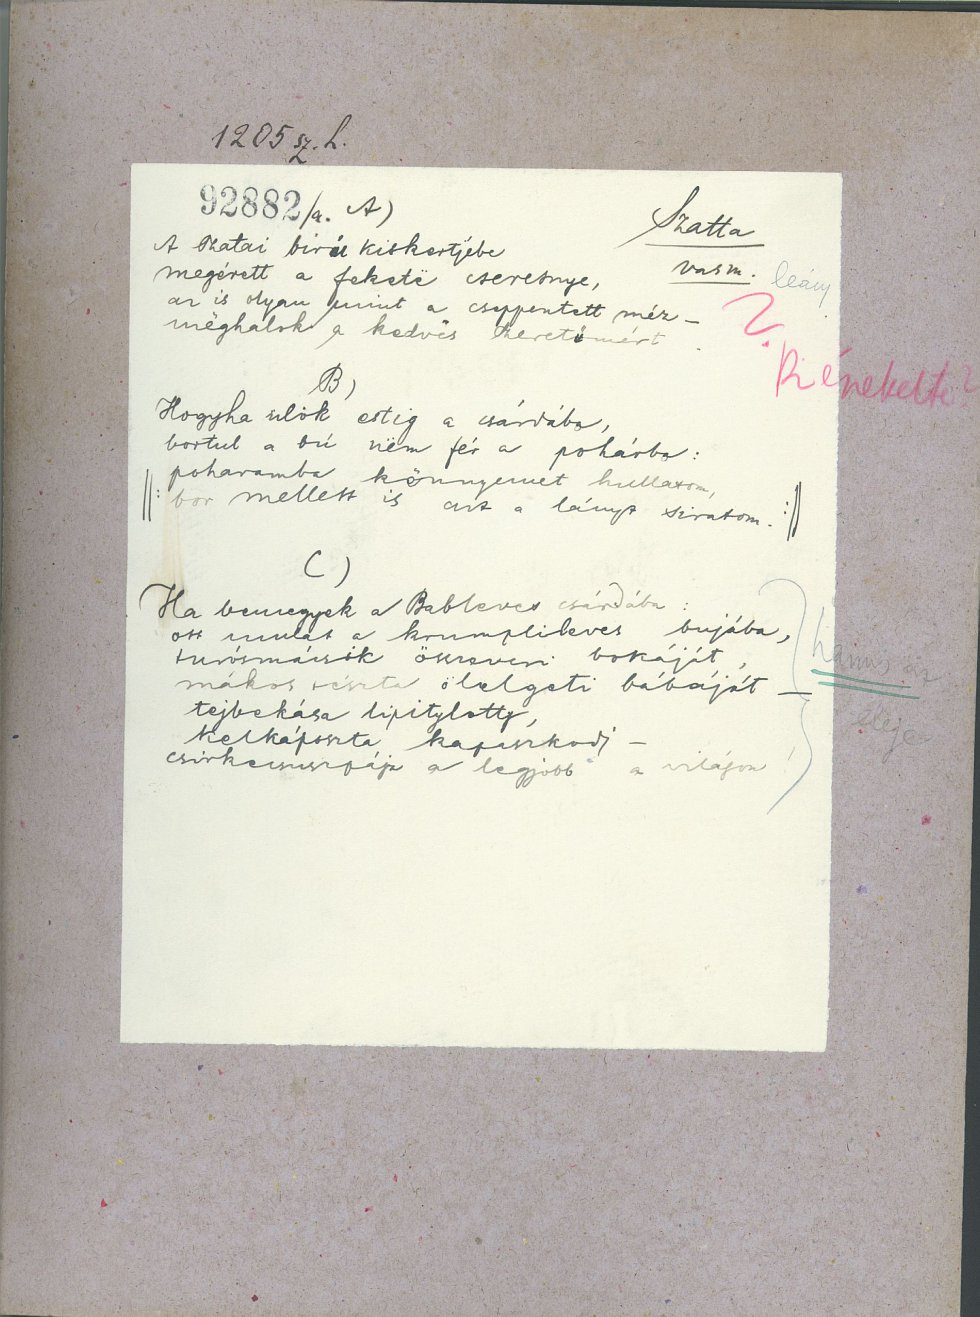 1205 sz. h.
92882/a. A)
Szatta
vasm.
leány
A Szatai biró kiskertjébe
megérett a fekete cseresnye,
az is olyan mint a cseppentett méz –
mëghalok a kedvës szeretőmért.
?
Ki énekelte?
B)
Hogyha ülök estig a csárdába,
bortul a bú nëm fér a pohárba:
||: poharamba könnyemet hullatom,
bor mellett is azt a lányt siratom. :||
C)
Ha bemegyek a Bableves csárdába:
ott mulat a krumplileves bujába,
turósmácsik összeveri bokáját,
mákos tészta ölelgeti bábáját –
tejbekása lipityloty,
kelkáposzta kapaszkodj –
csirkecsuszpájz a legjobb a világon!
hamis az
eleje